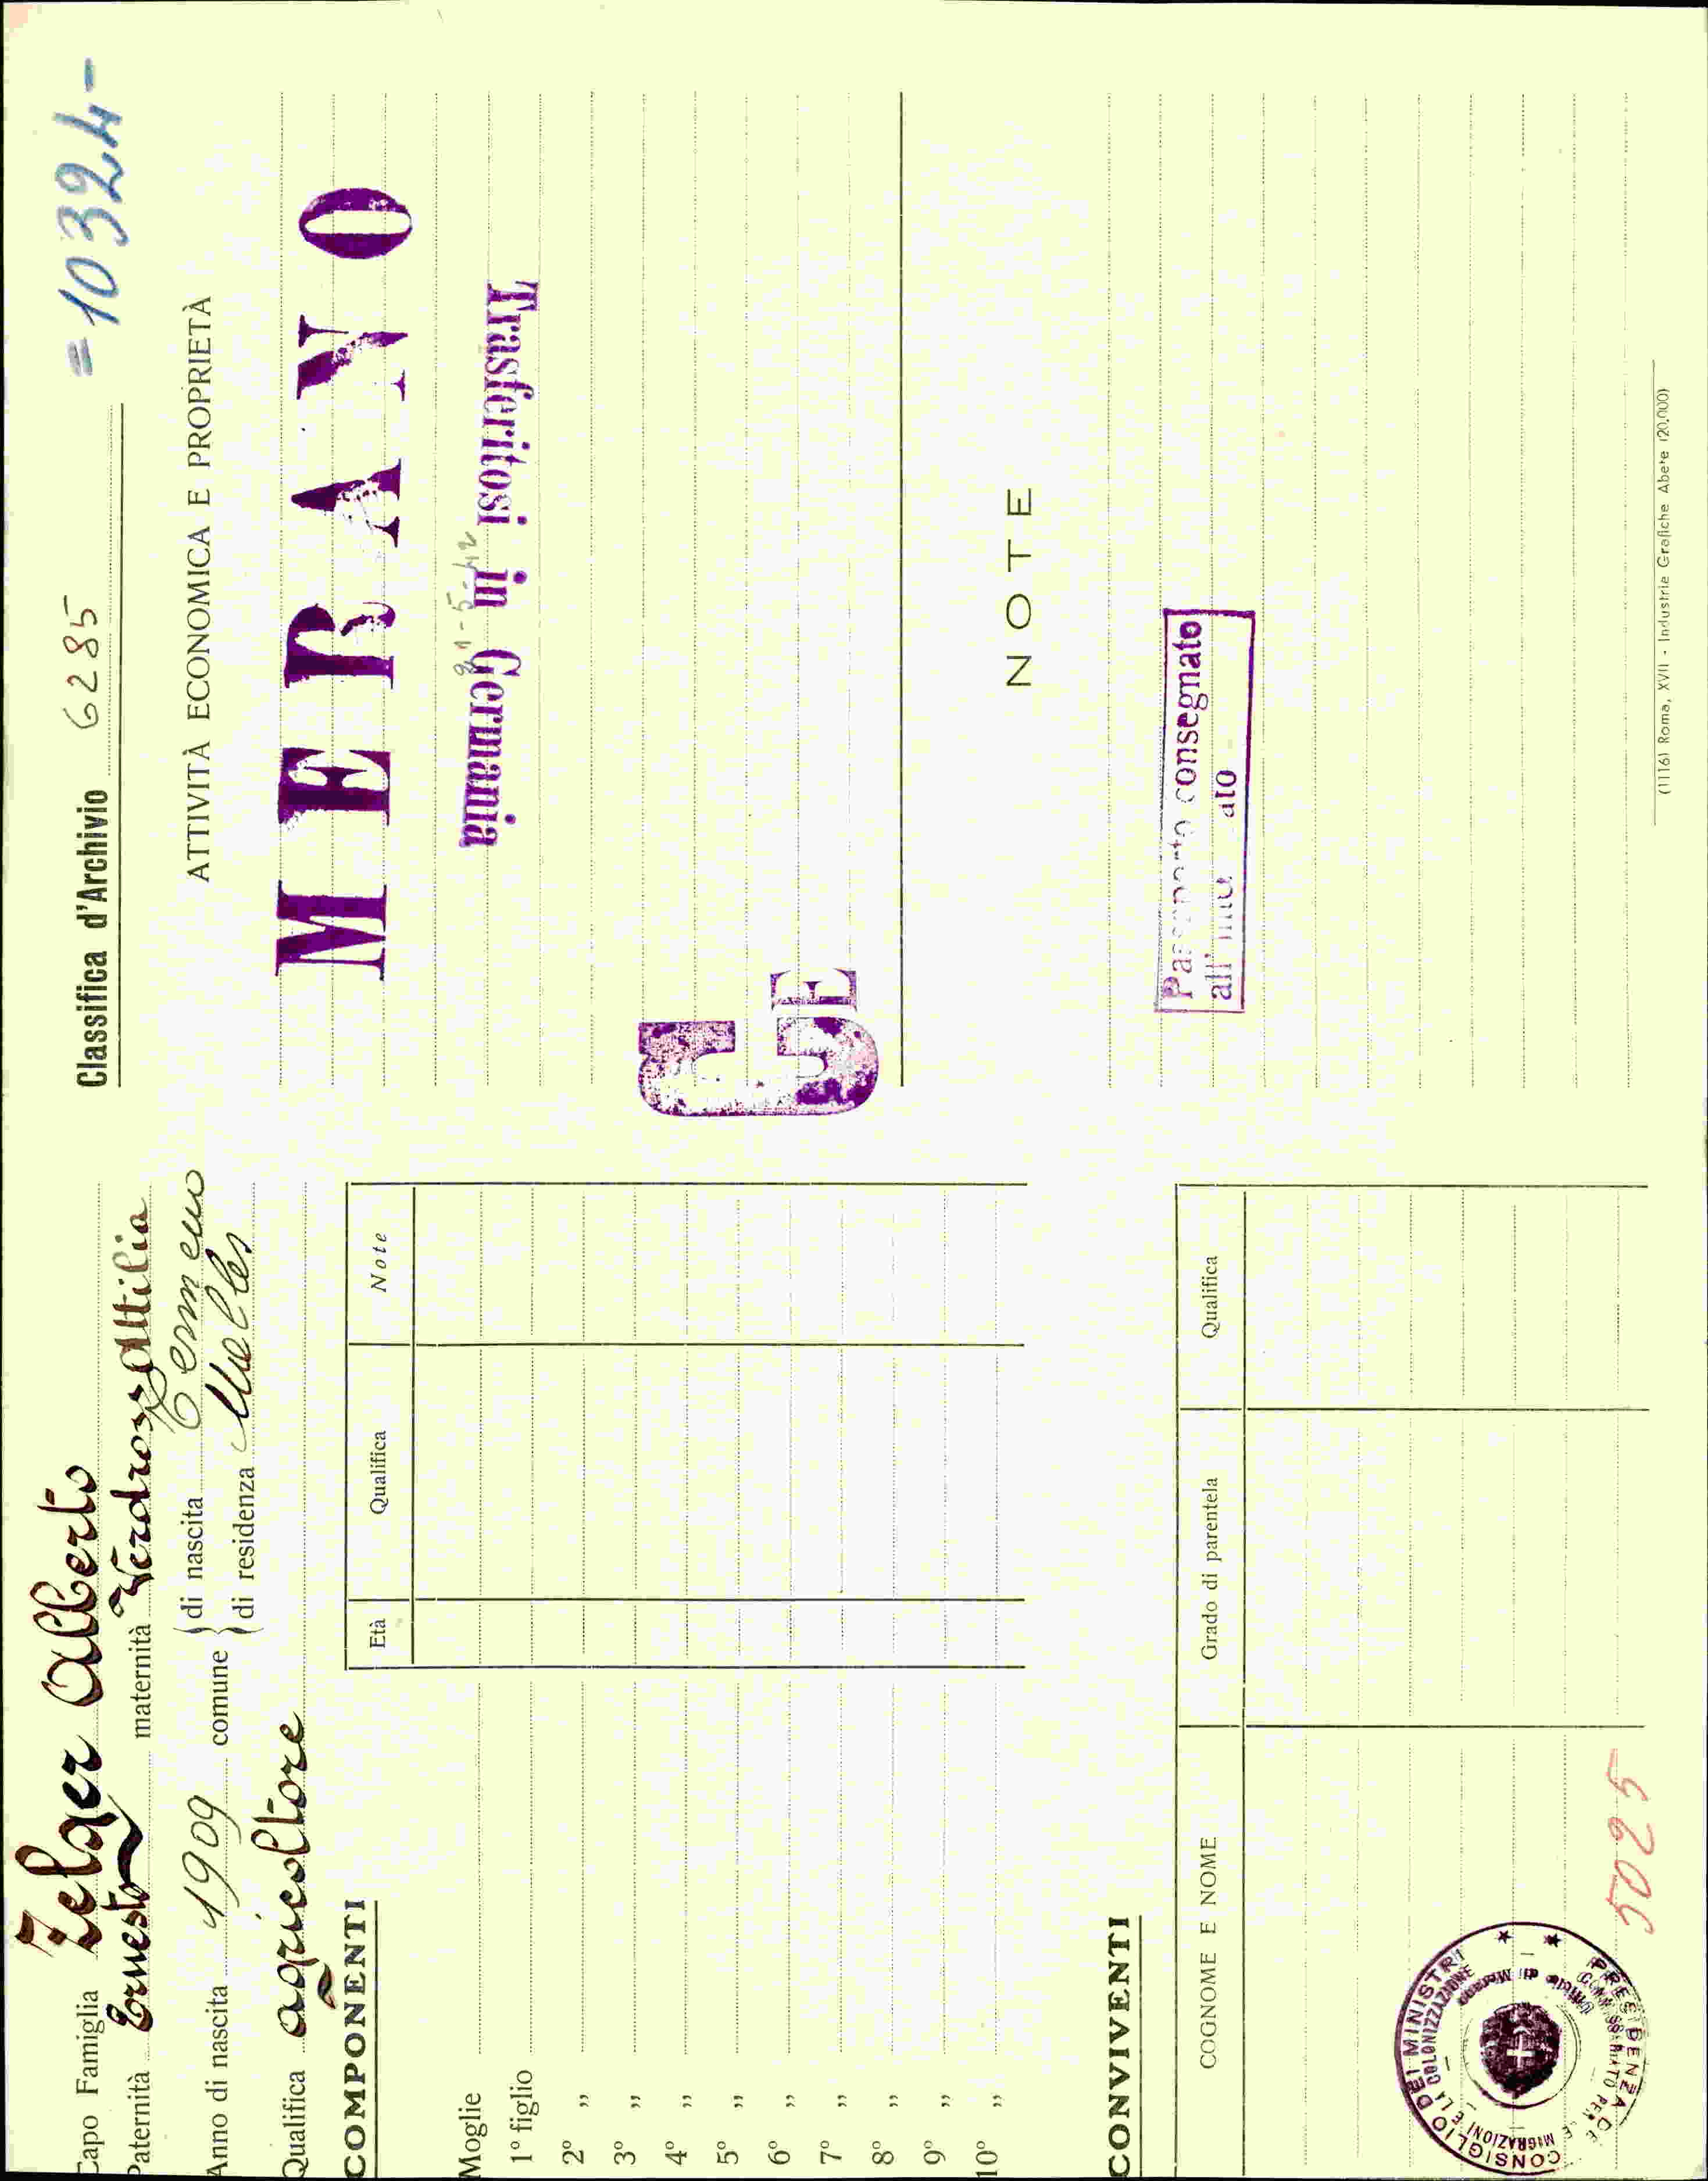 Capo Famiglia Zelger Alberto
Paternità Ernesto maternità Verdross Attilia
Anno di nascita 1909 comune di nascita Termeno
di residenza Malles
Qualifica agricoltore
COMPONENTI
Età Qualifica Note
Moglie
1º figlio
2º „
3º „
4º „
5º „
6º „
7º „
8º „
9º „
10º „
CONVIVENTI
COGNOME E NOME Grado di parentela Qualifica
5025
PRESIDENZA DEL CONSIGLIO DEI MINISTRI
COMMISSARIATO PER LE MIGRAZIONI E LA COLONIZZAZIONE
Classifica d'Archivio 6285 =10324-
ATTIVITÀ ECONOMICA E PROPRIETÀ
MERANO
31-5-42
Trasferitosi in Germania
GE
NOTE
consegnato
(1116) Roma, XVII - Industrie Grafiche Abete (20.000)